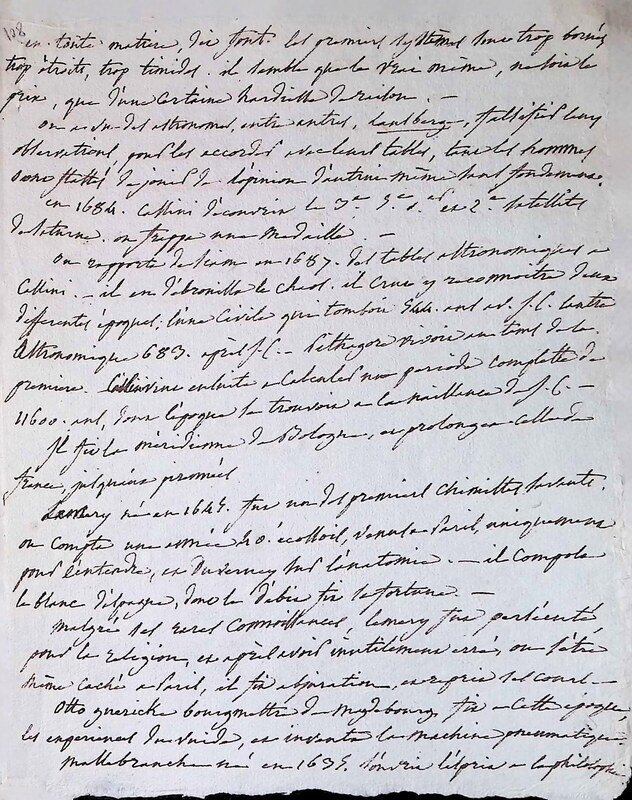 108
en toute matiere, dit font. les premiers systemes sont trop bornés,
trop étroits, trop timides. il semble que le vrai même, ne soit le
prix, que d'une certaine hardiesse de raison. —
on a vu des astronomes, entre autres, Lansberge, falsifier leurs
observations, pour les accorder avec leurs tables, tant les hommes
sont flattés de jouir de l'opinion d'autrui même sans fondement.
en 1684. Cassini découvrit le 3e 5e 1er et 2e satellites
de Saturne. on frappa une medaille. —
On rapporta de Siam en 1687. des tables astronomiques a
Cassini. — il en débrouilla le chaos. il crut y reconnoitre deux
differentes époques; l'une Civile qui tomboit 544. ans av. J.C. l'autre
Astronomique 683. après J.C. — Pithagore vivoit au tems de la
premiere. Cassini vint ensuite a calculer une periode complette de
11600. ans, dont l'époque se trouvoit a la naissance de J.C. —
Il fit la méridienne de Bologne, et prolongea celle de
france, jusqu'aux pirenées
Lemery né en 1645. fut un des premiers Chimistes savants.
on compta une année 40. écossois, venus a Paris, uniquement
pour l'entendre, et Duverney sur l'anatomie. — il composa
le blanc d'espagne, dont le débit fit sa fortune. —
malgré ses rares connoissances, lemery fut persécuté
pour la religion, et après avoir inutilement erré, ou s'être
même caché a Paris, il fit abjuration, et reprit ses cours. —
Otto guericke bourgmestre de Magdebourg, fit a cette époque,
les experiences du vuide, et inventa la machine pneumatique
mallebranche né en 1638. s'ouvrit l'esprit a la philosophie